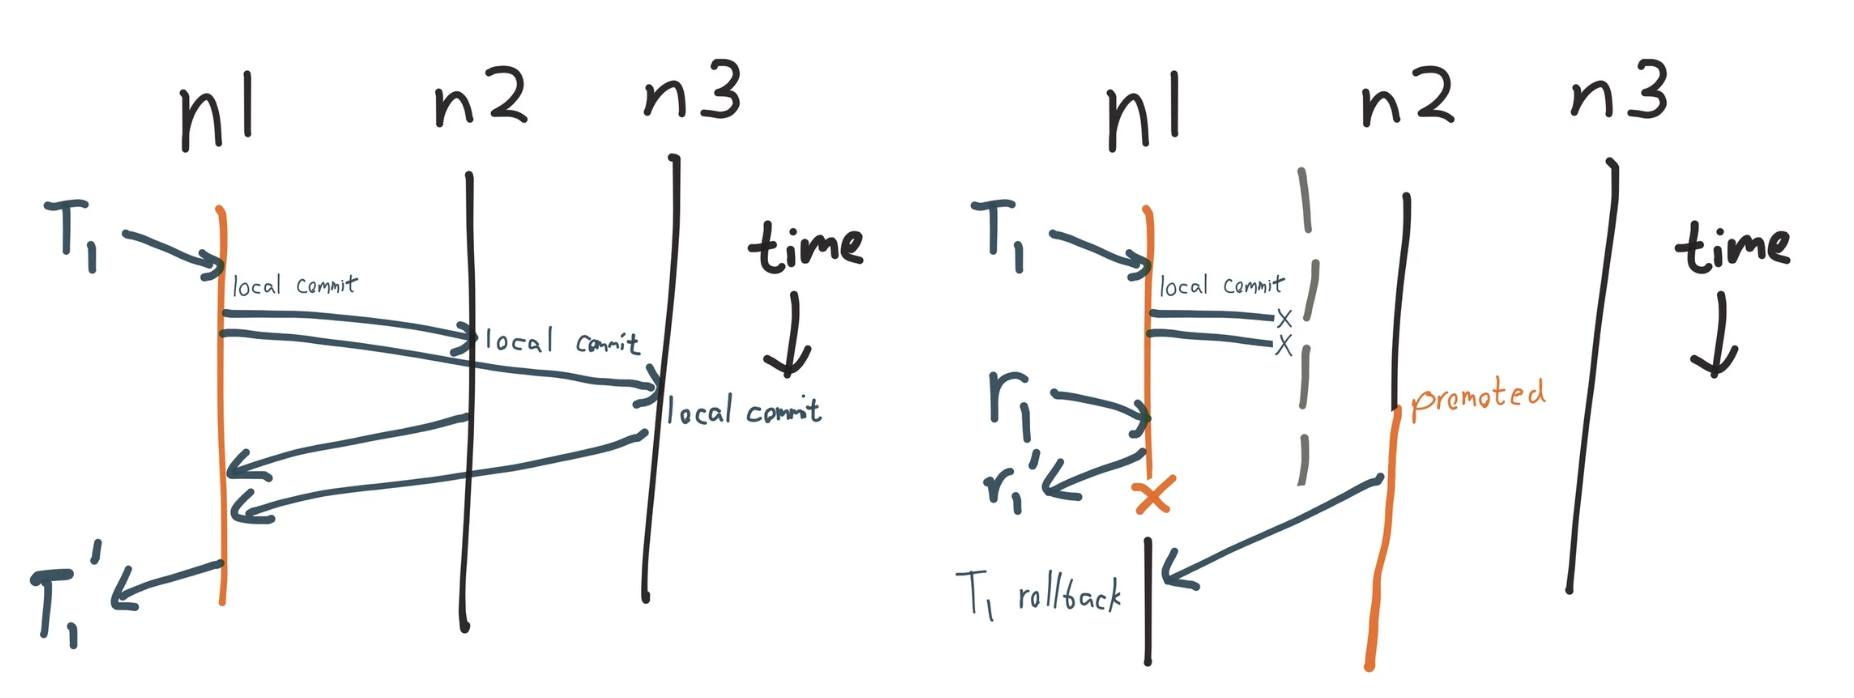 n1 n2 n3
T1
time
local commit
local commit
local commit
T1'
n1 n2 n3
T1
time
local commit
x
x
r1
promoted
r1'
x
T1 rollback